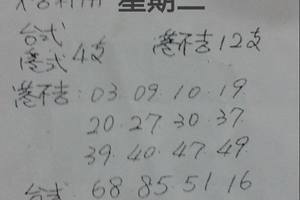 星期二
台式
港式 4支 港不吉12支
港不吉: 03 09 10 19
20 27 30 37
39 40 47 49
台式: 68 85 51 16